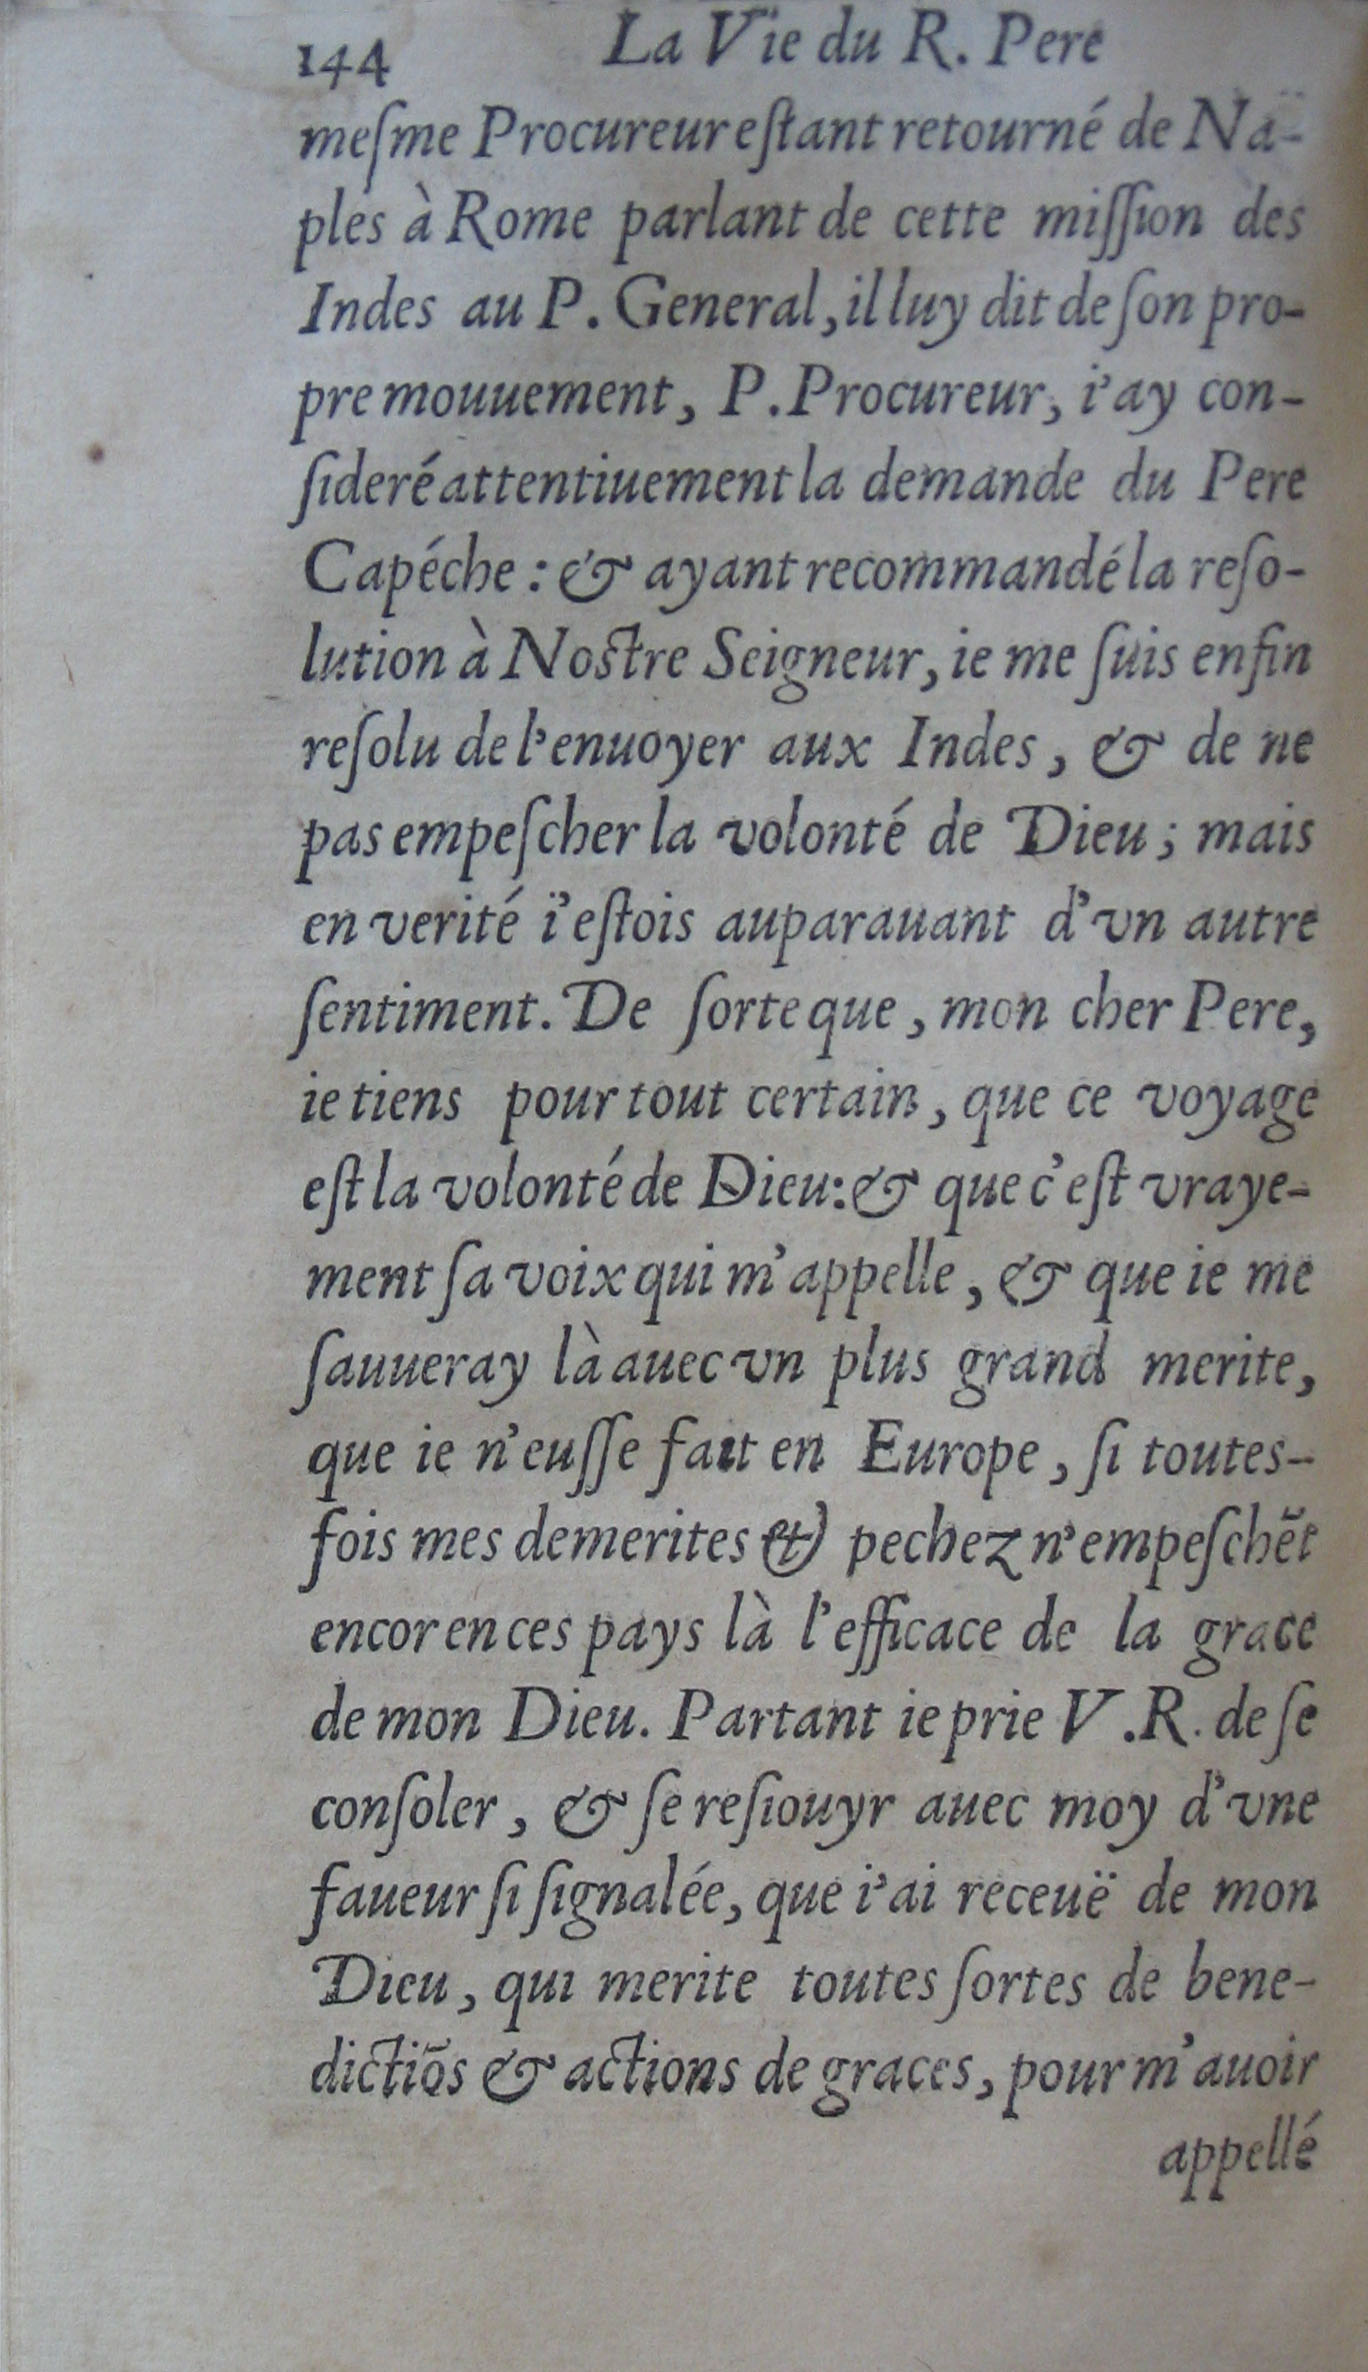 144 La Vie du R. Pere
meſme Procureur eſtant retourné de Na-
ples à Rome parlant de cette miſſion des
Indes au P. General, il luy dit de ſon pro-
pre mouuement, P. Procureur, i'ay con-
ſideré attentiuement la demande du Pere
Capéche : & ayant recommandé la reſo-
lution à Noſtre Seigneur, ie me ſuis enfin
reſolu de l'enuoyer aux Indes, & de ne
pas empeſcher la volonté de Dieu ; mais
en verité i'eſtois auparauant d'vn autre
ſentiment. De ſorte que, mon cher Pere,
ie tiens pour tout certain, que ce voyage
eſt la volonté de Dieu : & que c'eſt vraye-
ment ſa voix qui m'appelle, & que ie me
ſauueray là auec vn plus grand merite,
que ie n'euſſe fait en Europe, ſi toutes-
fois mes demerites & pechez n'empeſchẽt
encor en ces pays là l'efficace de la grace
de mon Dieu. Partant ie prie V. R. de ſe
conſoler, & ſe reſiouyr auec moy d'vne
faueur ſi ſignalée, que i'ai receuë de mon
Dieu, qui merite toutes ſortes de bene-
dictiõs & actions de graces, pour m'auoir
appellé